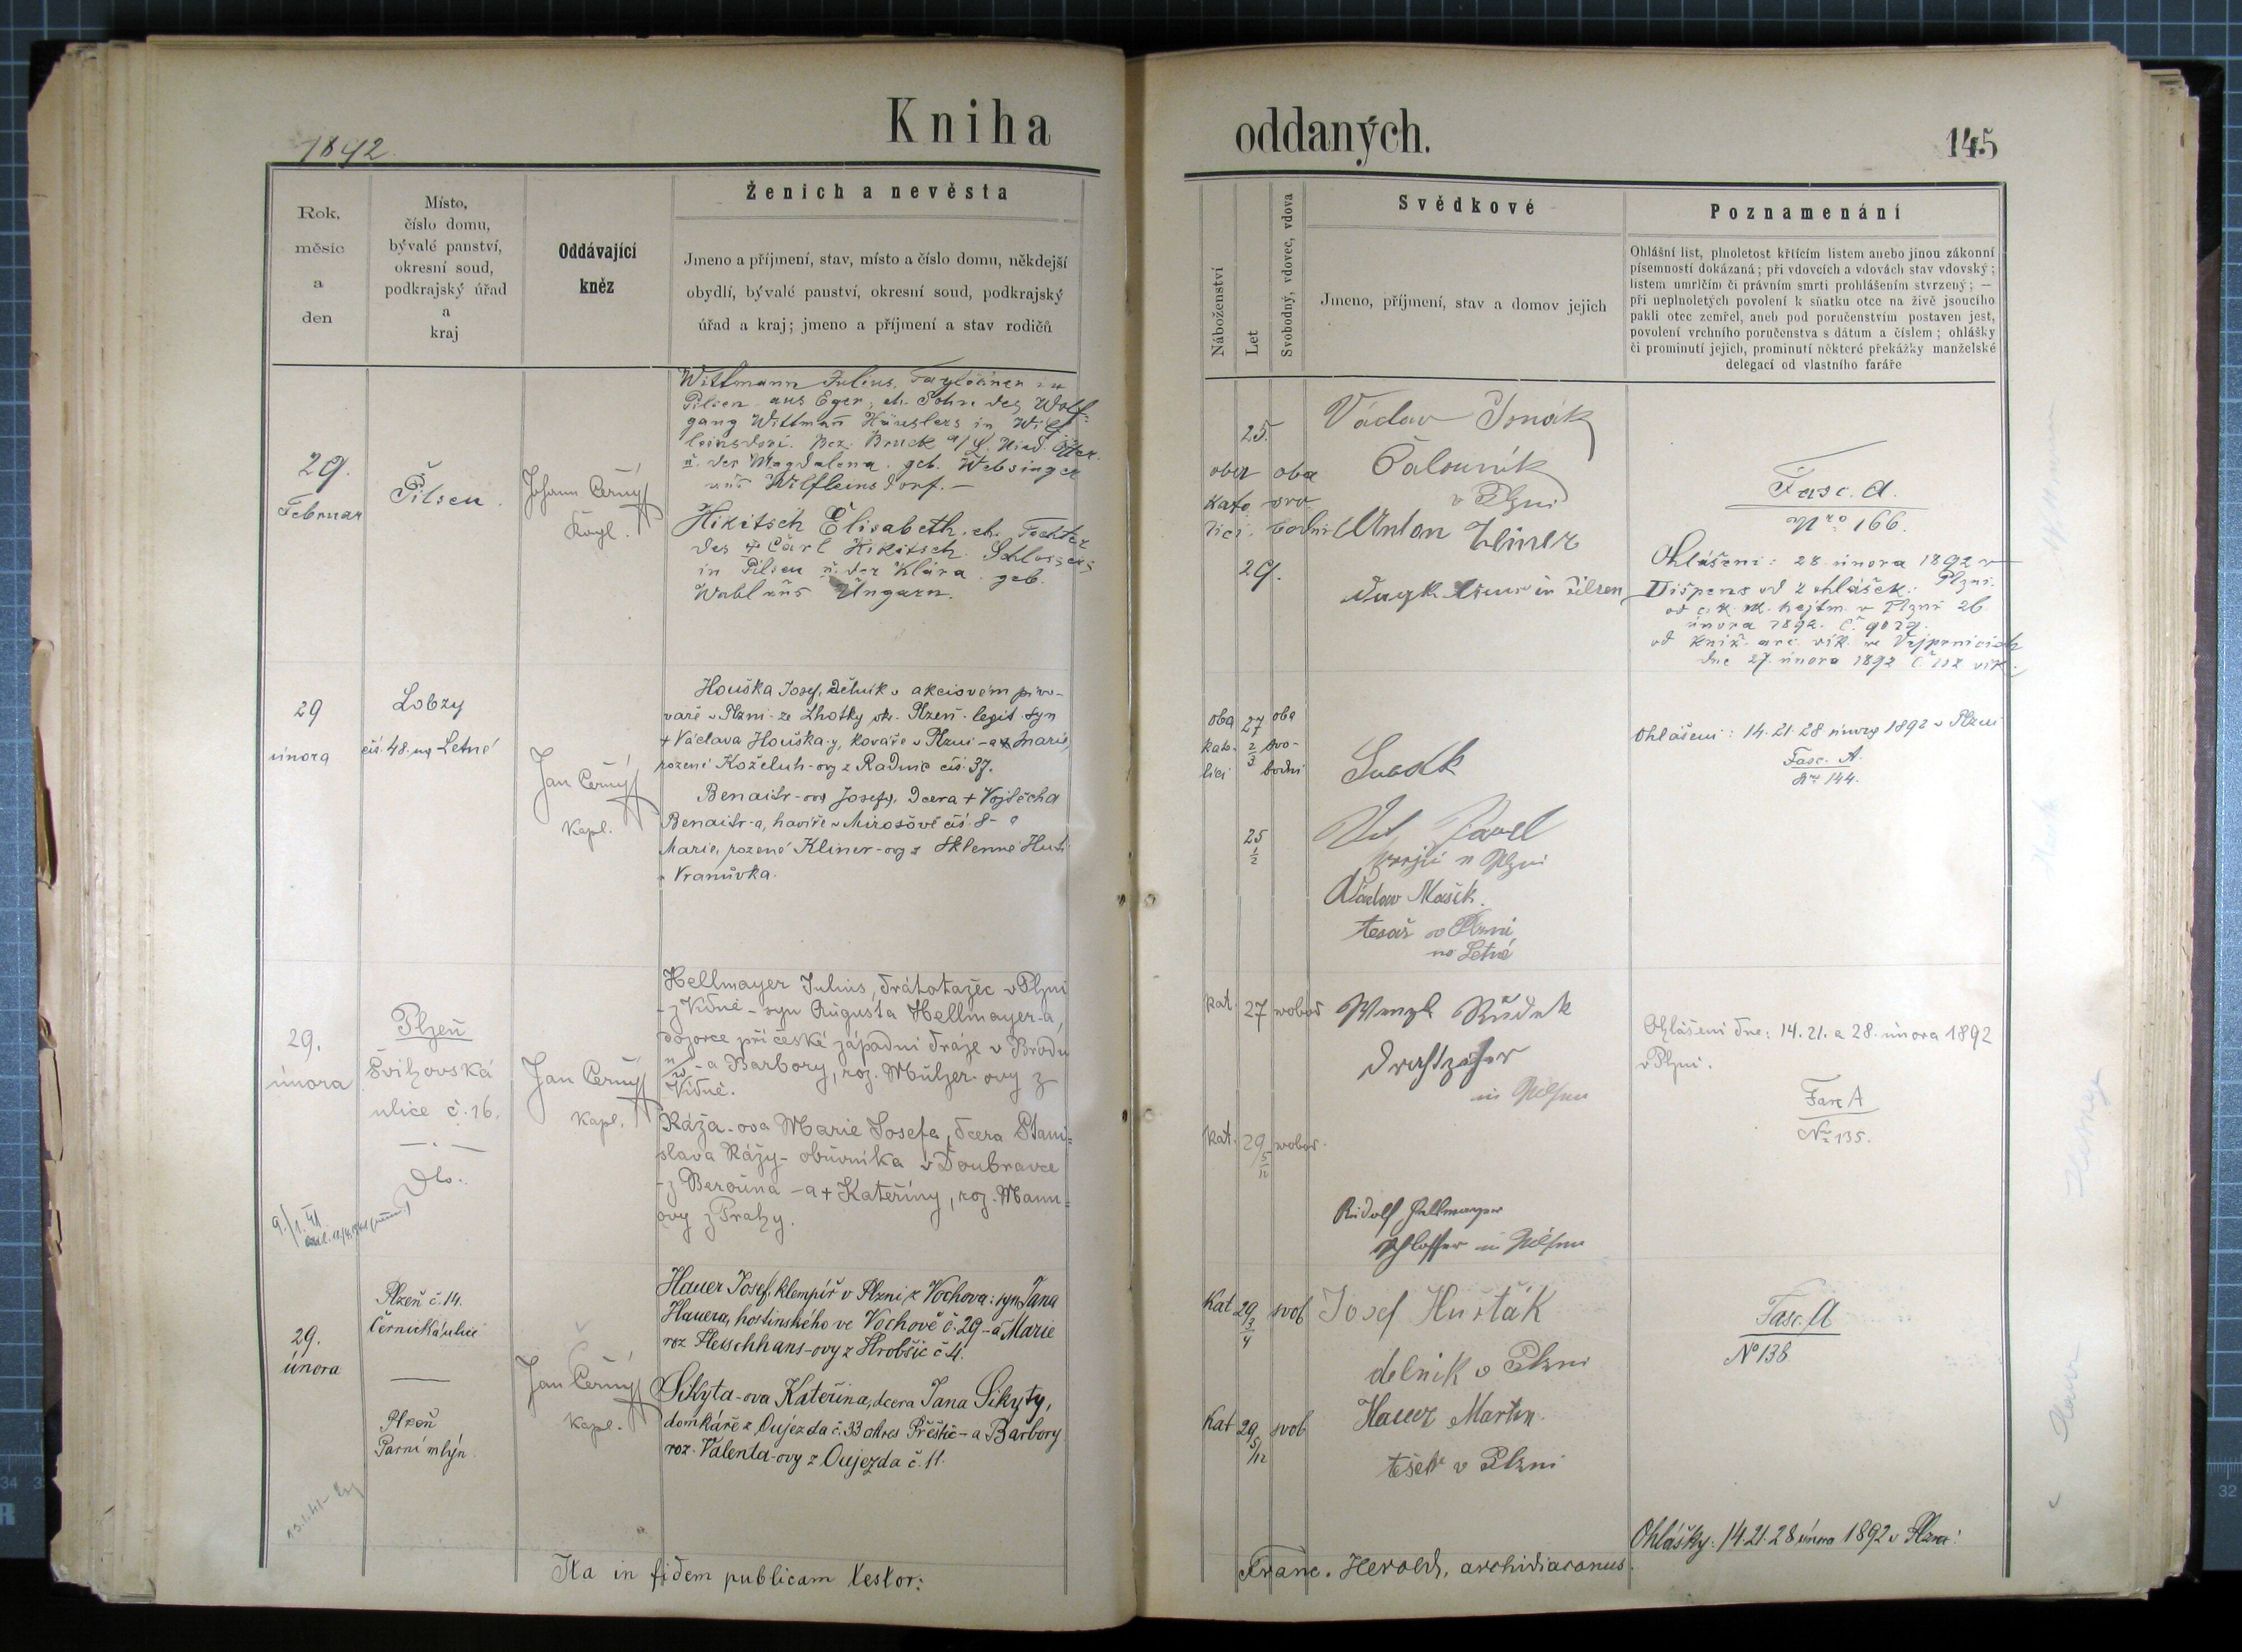 1892
Kniha
oddaných.
145
Rok,
měsíc
a
den
Místo,
číslo domu,
bývalé panství,
okresní soud,
podkrajský úřad
a
kraj
Oddávající
kněz
Ženich a nevěsta
Jmeno a příjmení, stav, místo a číslo domu, někdejší
obydlí, bývalé panství, okresní soud, podkrajský
úřad a kraj; jmeno a příjmení a stav rodičů
Náboženství
Let
Svobodný, vdovec, vdova
Svědkové
Jmeno, příjmení, stav a domov jejich
Poznamenání
Ohlášní list, plnoletost křticím listem anebo jinou zákonní
písemností dokázaná; při vdovcích a vdovách stav vdovský;
listem umrlčím či právním smrti prohlášením stvrzený; —
při neplnoletých povolení k sňatku otce na živě jsoucího
pakli otec zemřel, aneb pod poručenstvím postaven jest,
povolení vrchního poručenstva s dátum a číslem; ohlášky
či prominutí jejich, prominutí některé překážky manželské
delegací od vlastního faráře
29.
Februar
Pilsen
Johann Černý
Wittmann Julius, in
Pilsen aus Eger, eh. Sohn des Wolf-
gang Wittmann Häuslers in Wilf-
leinsdorf. Bez. Bruck a/L. Nied. Öster.
u. der Magdalena geb. Websinger
aus Wilfleinsdorf. —
Hikitsch Elisabeth, eh. Tochter
des + Carl Hikitsch Schlossers
in Pilsen u. der Klára geb.
Wahl aus Ungarn.
25.
oba oba
kato svo
lici. bodni
29.
Václav
Čalouník
v Plzni
Anton
in Pilsen
Fasc. A.
Nro 166.
Ohlášeni: 28 února 1892 v
Plzni.
Dispens od 2 ohlášek:
od c. k. hejtm. v Plzni 26
února 1892. Č.
od kníž. arc. vik. ve Vejprnicích
dne 27. února 1892 č. vik.
29
února
Lobzy
čís. 48. na Letné
Jan Černý
Kapl.
Houška Josef, dělník v akciovém pivo-
vaře v Plzni ze Lhotky okr. Plzeň. legit. syn
+ Václava Houška-y, kováře v Plzni - a + Marie,
rozené Koželuh-ovy z Radnic čís. 37.
Benaitr-ova Josefa, dcera + Vojtěcha
Benaitr-a, havíře v Mirošově čís. 8 - a
Marie, rozené Kliner-ovy z Sklenné Huti
u Vranůvka.
oba 27 oba
kato- 2/3 svo-
lici bodni
25
1/2
Svědk
Pavel
krejčí v Plzni
Václav Mašek.
tesař v Plzni
na Letné
Ohlášeni: 14. 21. 28 února 1892 v Plzni
Fasc. A.
Nro 144.
29.
února
Plzeň
Švihovská
ulice č. 16.
Dto.
Jan Černý
Kapl.
Hellmayer Julius, drátotažec v Plzni
- z Kdyně - syn Augusta Hellmayer-a,
dozorce při české západní dráze v Brodu
n/L - a Barbory, roz. Mülzer-ovy z
Ráža-ova Marie Josefa, dcera Stani-
slava Rážy - obuvníka v Doubravce
- z Berouna - a + Kateřiny, roz. Mann-
ovy z Prahy.
kat. 27 svobod
kat. 29 5/12 svobod.
Wenzl Růdek
Drahtzieher
in Pilsen
Rudolf Hellmayer
Schlosser in Pilsen
Ohlášení dne: 14. 21. a 28. února 1892
v Plzni.
Fasc A
No 135.
29.
února
Plzeň č. 14.
Černická ulice
Plzeň
Parní mlýn.
Jan Černý
Kapl.
Hauer Josef, klempíř v Plzni z Vochova: syn Jana
Hauera, hostinského ve Vochově č. 29 - a Marie
roz Fleischhans-ovy z Hrobšic č 4.
Sikyta-ova Kateřina, dcera Jana Sikyty,
domkáře z Oujezda č. 33 okres Přeštic - a Barbory
roz. Valenta-ovy z Oujezda č. 11.
Kat 29 3/4 svob
Kat 29 5/12 svob
Josef Husták
delnik v Plzni
Hauer Martin
v Plzni
Fasc. A
No 138
Ohlášky: 14. 21. 28 února 1892 v Plzni.
Ita in fidem publicam testor:
Franc. Herold, archidiaconus.